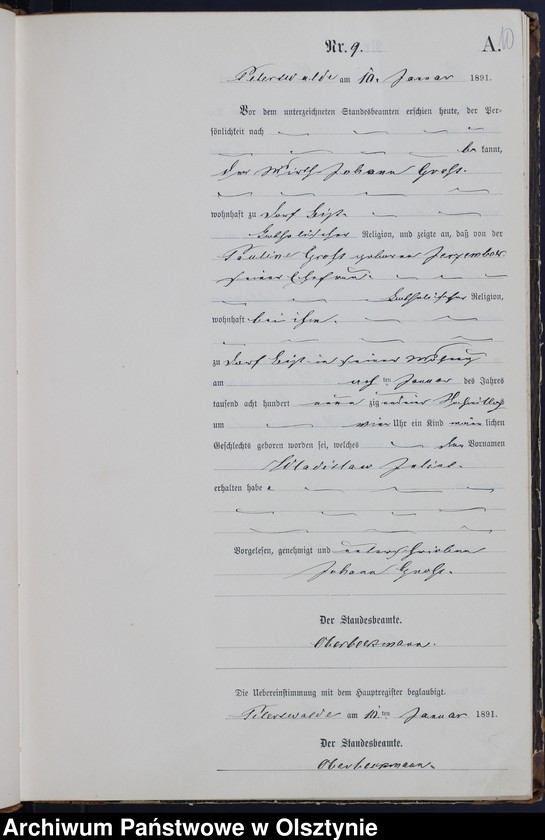 Nr. 9.
A. 10
Peterswalde am 10. Januar 1891.
Vor dem unterzeichneten Standesbeamten erschien heute, der Per-
sönlichkeit nach
be kannt,
der Wirth Johann Groß.
wohnhaft zu Dorf
katholischer Religion, und zeigte an, daß von der
Pauline Groß geborene
seiner Ehefrau.
katholischer Religion,
wohnhaft bei ihm.
zu Dorf in seiner Wohnung
am ten Januar des Jahres
tausend acht hundert neun zig und ein Nachmittags
um vier Uhr ein Kind männ lichen
Geschlechts geboren worden sei, welches den Vornamen
Wladislaw Julius.
erhalten habe
Vorgelesen, genehmigt und unterschrieben
Johann Groß.
Der Standesbeamte.
Oberbeckmann.
Die Uebereinstimmung mit dem Hauptregister beglaubigt.
Peterswalde am 10. ten Januar 1891.
Der Standesbeamte.
Oberbeckmann.
Archiwum Państwowe w Olsztynie